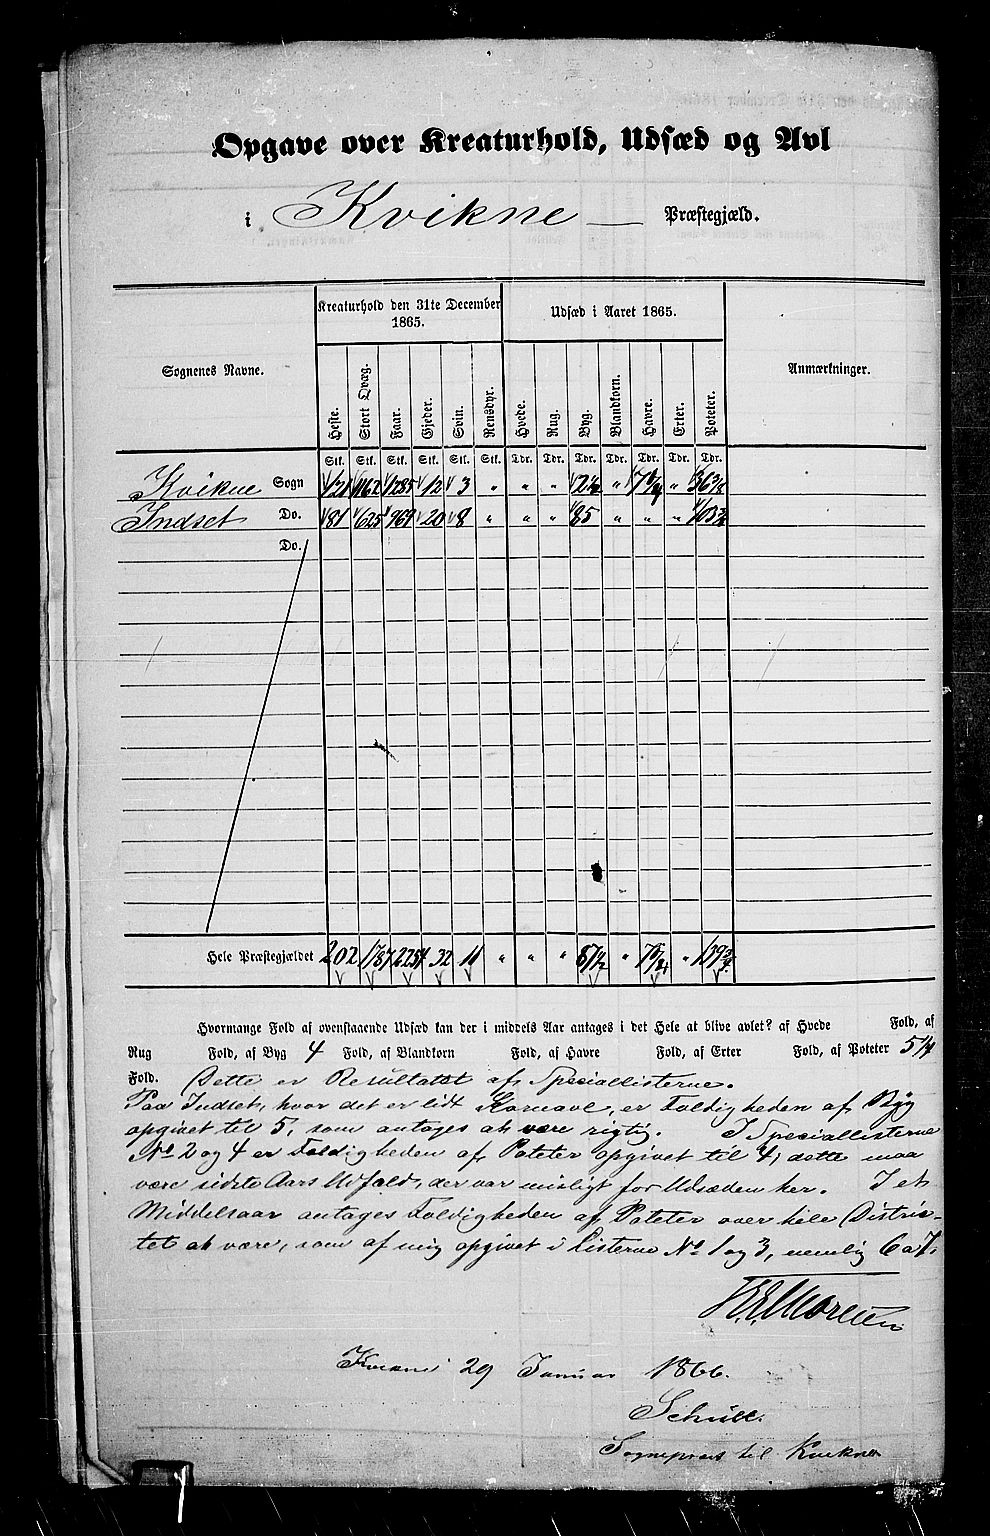 Opgave over Kreaturhold, Udsæd og Avl
i Kvikne — Præstegjæld.
Kreaturhold den 31te December 1865.
Udsæd i Aaret 1865.
Sognenes Navne.
Heste. Stort Qvæg. Faar. Gjeder. Svin. Rensdyr. Hvede. Rug. Byg. Blandkorn. Havre. Erter. Poteter.
Anmærkninger.
Stk. Stk. Stk. Stk. Stk. Stk. Tdr. Tdr. Tdr. Tdr. Tdr. Tdr. Tdr.
Kvikne Sogn 121 1162 1285 12 3 " " " 2½ " " 36⅜
Indset Do. 81 625 969 20 8 " " " 85 " " "
Do.
Hele Præstegjældet 202 1787 2254 32 11 " " " 87½ " "
Hvormange Fold af ovenstaaende Udsæd kan der i middels Aar antages i det Hele at blive avlet? af Hvede Fold, af
Rug Fold, af Byg 4 Fold, af Blandkorn Fold, af Havre Fold, af Erter Fold, af Poteter 5¼
Fold. Dette er Resultatet af Speciallisterne.
Paa Indset, hvor det er lidt Kornavl, er Foldigheden af Byg
opgivet til 5, som antages at være rigtig. I Speciallisterne
No 2 og 4 er Foldigheden af Poteter opgivet til 4, dette maa
være sidste Aars Udfald, der var misligt for Udsæden her. I et
Middelsaar antages Foldigheden af Poteter over hele Distric-
tet at være, som af mig opgivet i Listerne No 1 og 3, nemlig 6 a 7.
29 Januar 1866.
Sognepræst til Kvikne